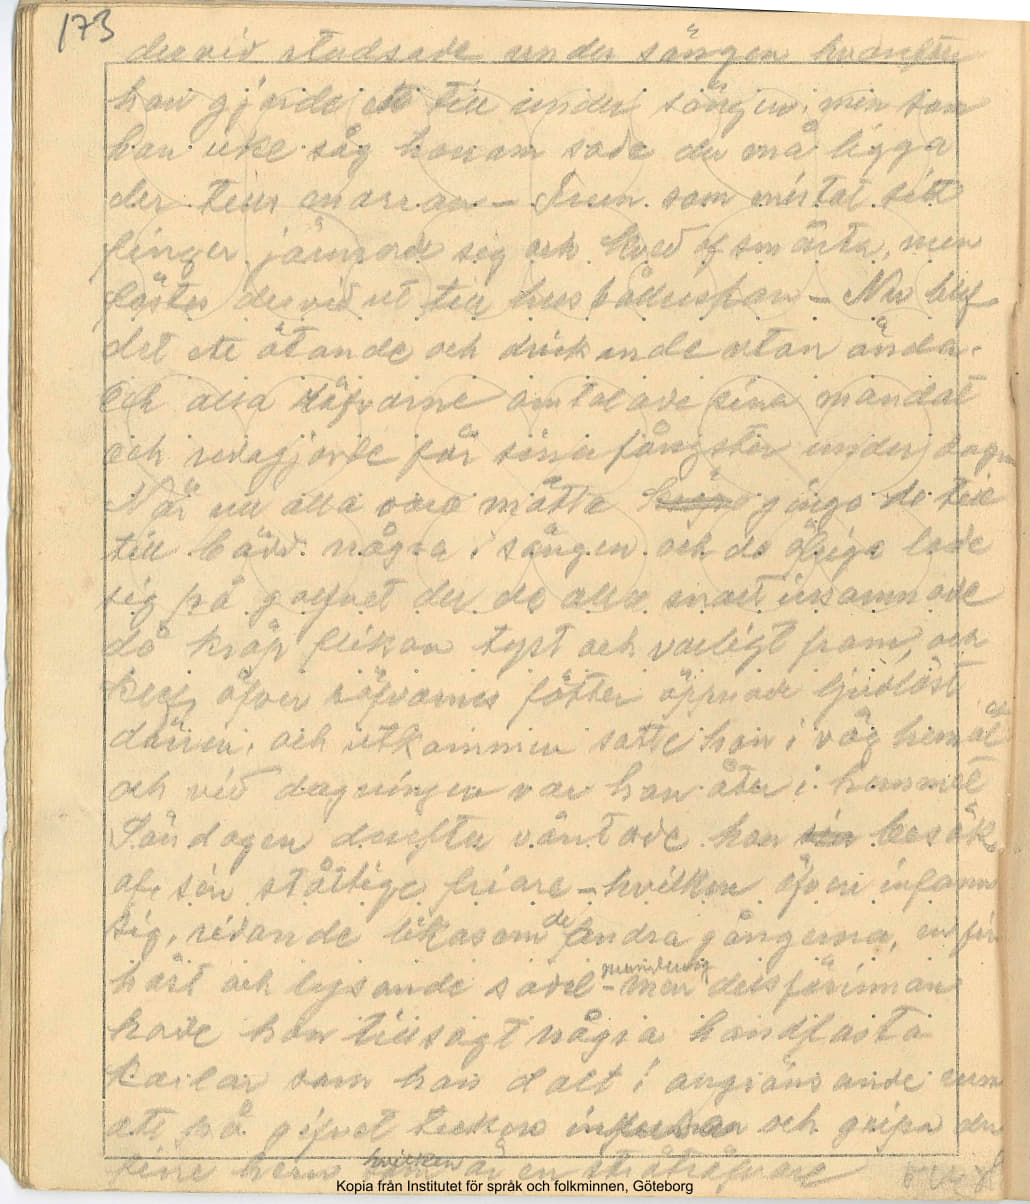 173
dervid studsade under sängen hvarefter
han gjorde ett till under sängen, men som
han icke såg honom sade du må ligga
der till marran – Frun som mistat sitt
finger jämrade sig och kved af smärta, men
löstes dervid ut till hushållerskan – Nu blef
det ett ätande och drickande utan ända.
Och alla röfvarne omtalade sina mandat
och redogjorde för sina fångster under dagen
När nu alla voro mätta gingo de till
till bädd några i sängen och de öfriga lade
sig på golfvet der de alla snart insomnade
då kröp flikan tyst och varligt fram, och
klef öfver röfvarnes fötter öppnade ljudlöst
dörren, och utkommen satte hon i väg hemåt
och vid dagningen var hon åter i hemmet
Söndagen derefter väntade hon besök
af sin ståtlige friare – hvilken äfven infann
sig, ridande likasom de andra gångerna, en fin
häst och lysande sadel-mundering men dessförinnan
hade hon tillsagt några handfasta
karlar som hon dolt i angränsande rum
att på gifvet tecken inkomma och gripa den
fine herrn hvilken är en stråtröfvare
Kopia från Institutet för språk och folkminnen, Göteborg